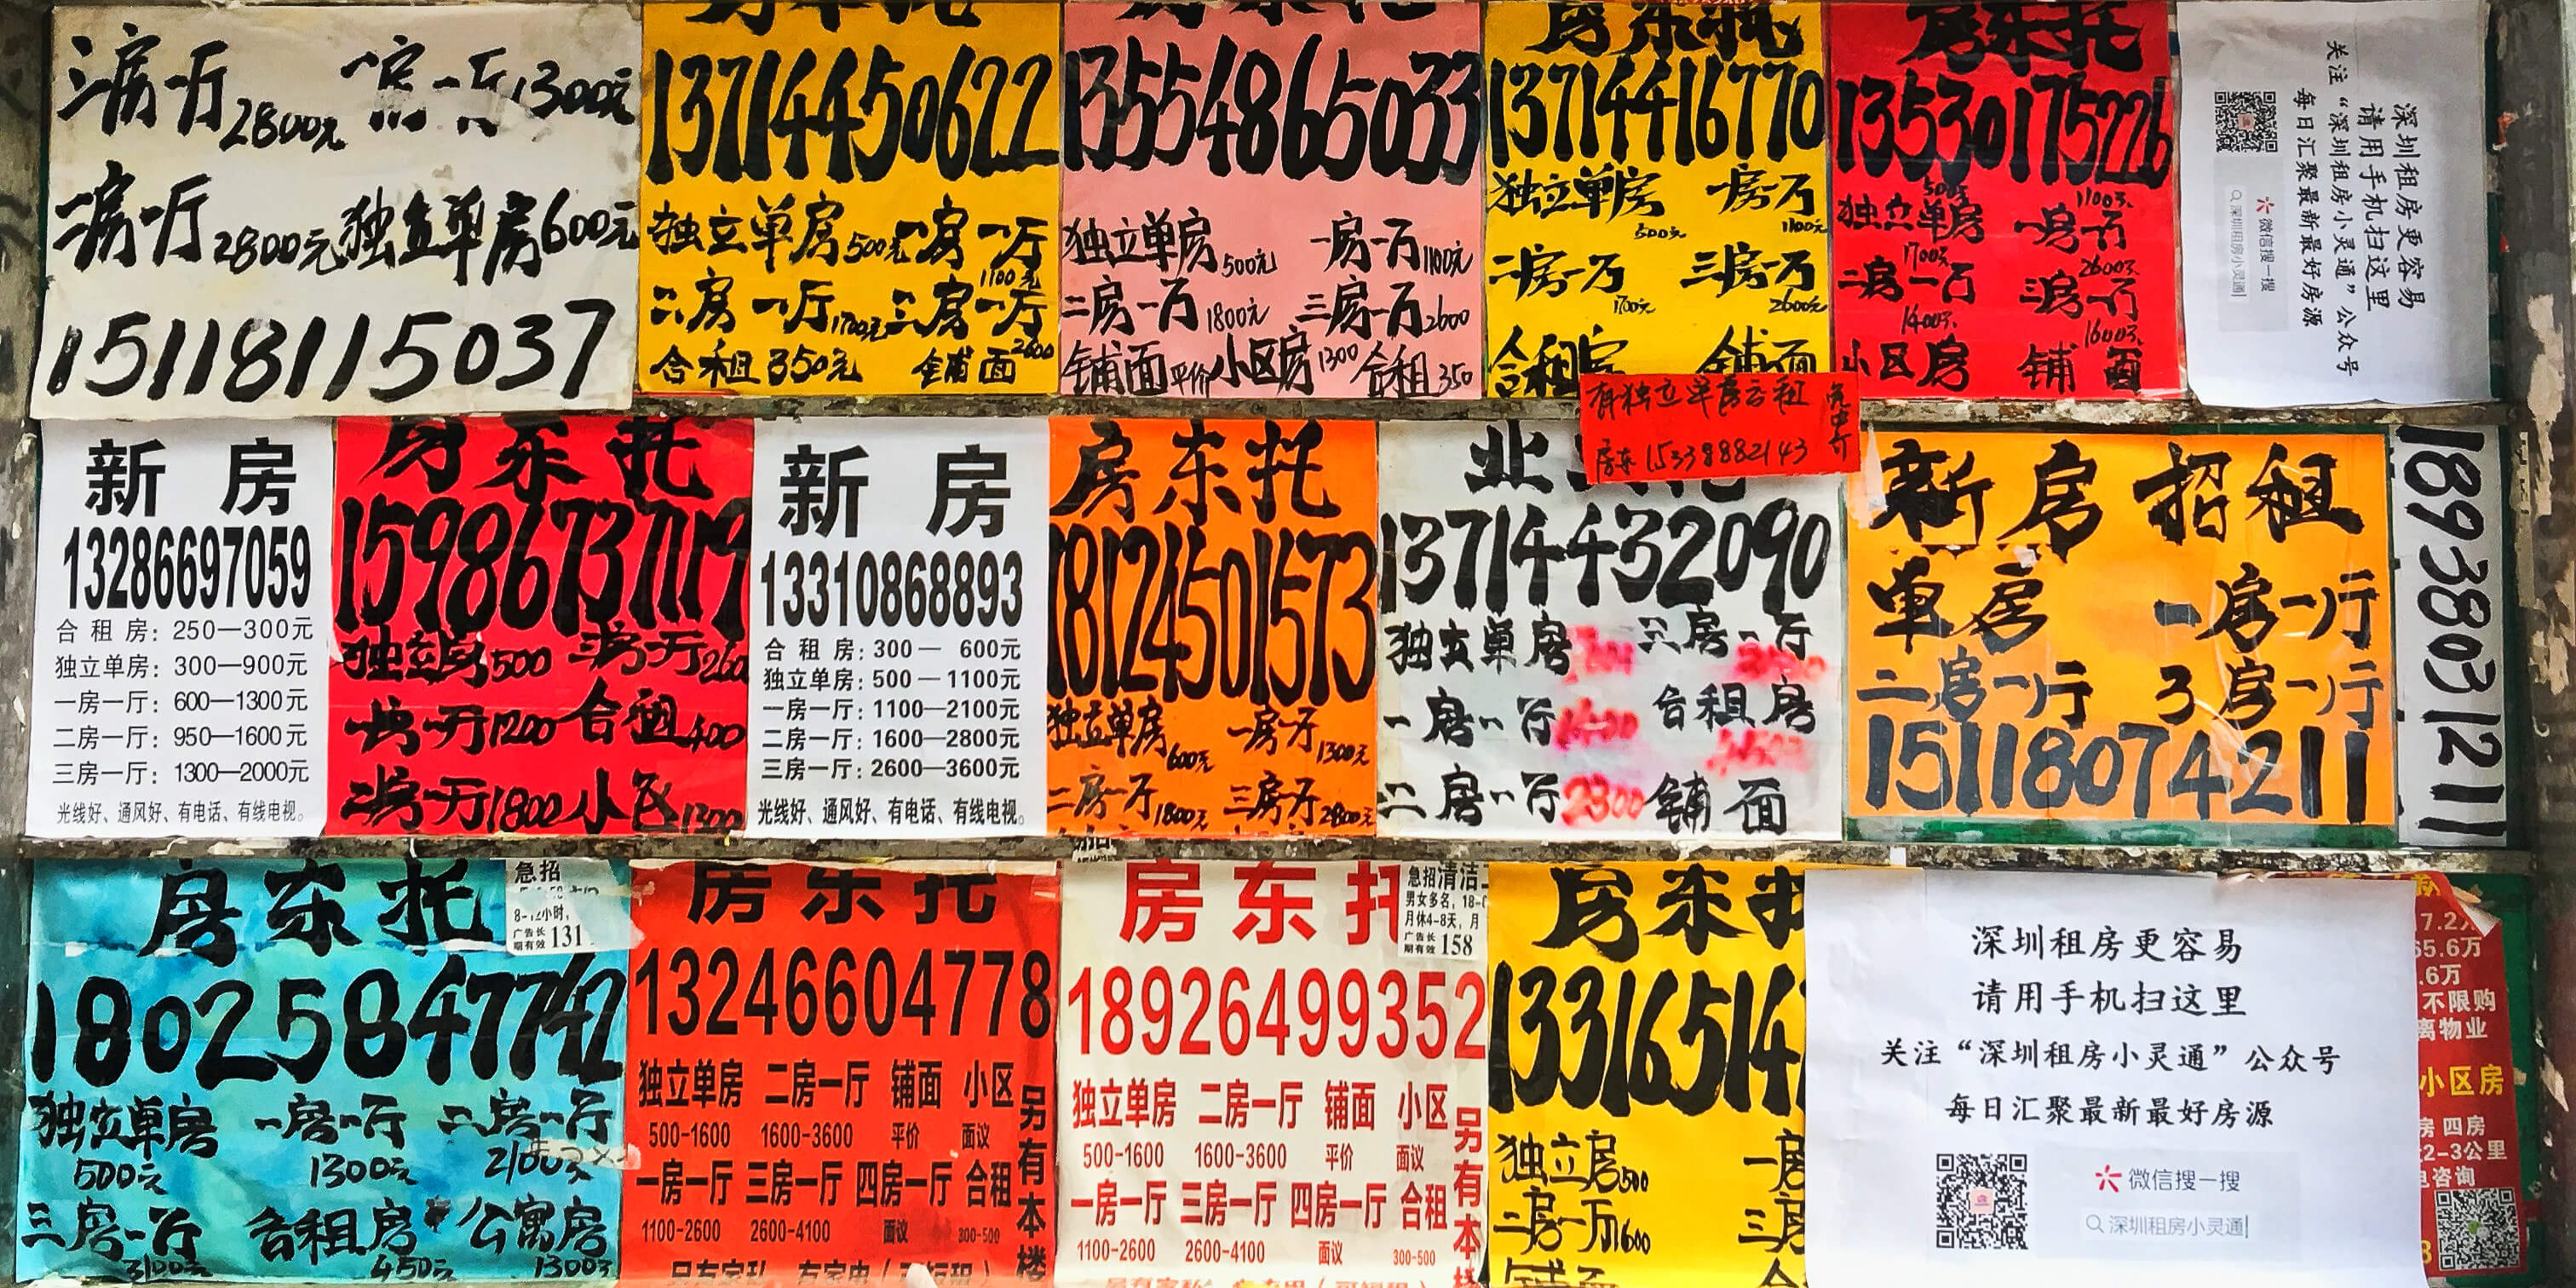 三房一厅2800元 一房一厅1300元
二房一厅2800元 独立单房600元
15118115037
房东托
13714450622
独立单房500元 一房一厅1100元
二房一厅1700元 三房一厅2600
合租350元 铺面
房东托
13554865033
独立单房500元 一房一厅1100元
二房一厅1800元 三房一厅2600
铺面平价 小区房1300 合租350
房东托
13714416770
独立单房500元 一房一厅1100元
二房一厅1700元 三房一厅2600元
合租房 铺面
房东托
13530175226
独立单房500元 一房一厅1100元
二房一厅1700元 三房一厅2600元
小区房1400元 铺面1600元
深圳租房更容易
请用手机扫这里
关注“深圳租房小灵通”公众号
每日汇聚最新最好房源
微信搜一搜
深圳租房小灵通
有独立单房出租
房东 15338882143
新房
13286697059
合租房：250—300元
独立单房：300—900元
一房一厅：600—1300元
二房一厅：950—1600元
三房一厅：1300—2000元
光线好、通风好、有电话、有线电视。
房东托
15986737119
独立房500 三房一厅260
一房一厅1200 合租400
二房一厅1800 小区1300
新房
13310868893
合租房：300— 600元
独立单房：500—1100元
一房一厅：1100—2100元
二房一厅：1600—2800元
三房一厅：2600—3600元
光线好、通风好、有电话、有线电视。
房东托
18124501573
独立单房600元 一房一厅1300元
二房一厅1800元 三房一厅2800元
13714432090
独立单房 三房一厅
一房一厅 合租房
二房一厅2300 铺面
新房招租
单房 一房一厅
二房一厅 3房一厅
15118074211
18938031211
房东托
18025847742
独立单房 一房一厅 二房一厅
500元 1300元 2100元
三房一厅 合租房 公寓房
3100元 450元 1300元
急招
8-12小时，
广告长期有效 131
房东托
13246604778
独立单房 二房一厅 铺面 小区
500-1600 1600-3600 平价 面议
一房一厅 三房一厅 四房一厅 合租
1100-2600 2600-4100 面议 300-500
另有本楼
房东托
18926499352
独立单房 二房一厅 铺面 小区
500-1600 1600-3600 平价 面议
一房一厅 三房一厅 四房一厅 合租
1100-2600 2600-4100 面议 300-500
另有本楼
急招清洁工
男女多名，18-
月休4-8天，月
广告长期有效 158
房东托
13316514
独立房500 一房
二房一厅1600 三房
铺面 合
深圳租房更容易
请用手机扫这里
关注“深圳租房小灵通”公众号
每日汇聚最新最好房源
微信搜一搜
深圳租房小灵通
7.2万
65.6万
.6万
不限购
离物业
小区房
房 四房
2-3公里
电咨询